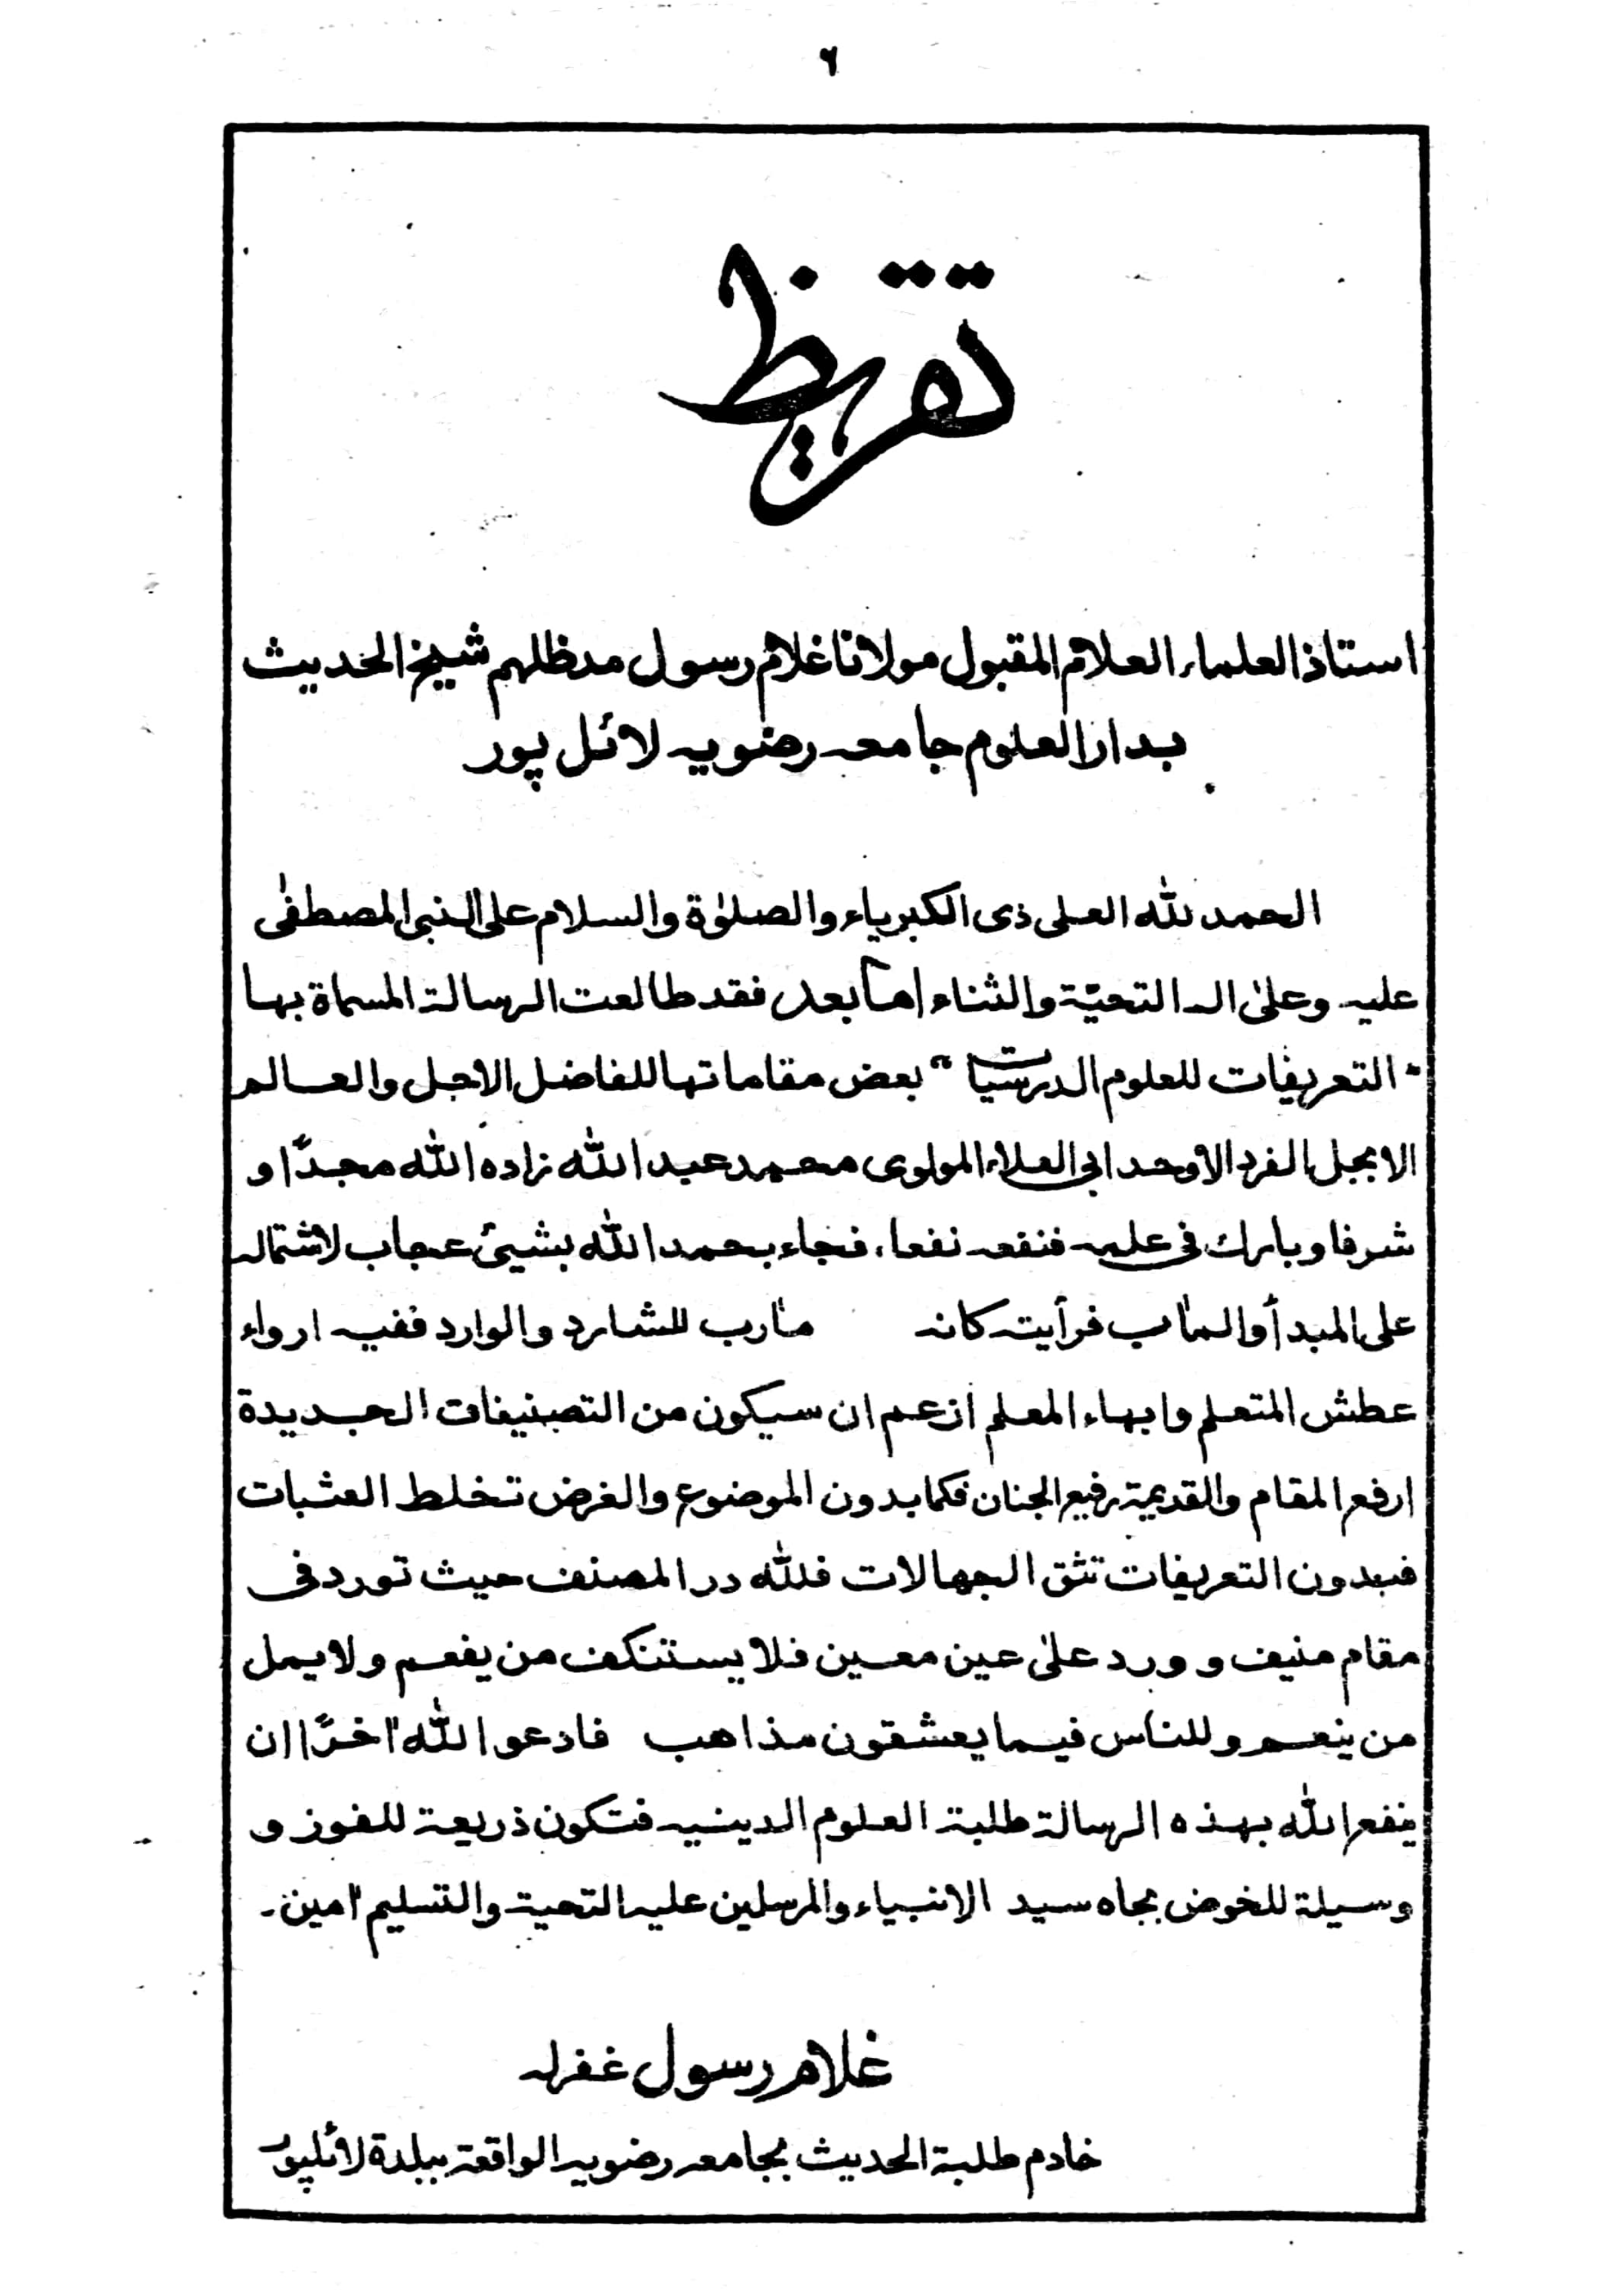 ٦
تقریظ
استاذ العلماء العلام المقبول مولانا غلام رسول مدظلہم شیخ الحدیث
بدار العلوم جامعہ رضویہ لائل پور
الحمد للہ العلی ذی الکبریاء والصلوٰۃ والسلام علی النبی المصطفٰی
علیہ وعلیٰ الہ التحیّۃ والثناء امّا بعد فقد طالعت الرسالۃ المسماۃ بہا
"التعریفات للعلوم الدرسیات" بعض مقاماتہا للفاضل الاجل والعالم
الابجل الفرد الاوحد ابی العلاء المولوی محمد عبد اللہ زادہ اللہ مجدًا و
شرفا وبارک فی علمہ فنفعہ نفعا، فجاء بحمد اللہ بشیئ عجاب لاشتمالہ
علی المبدأ والماٰب فرأیتہ کانہ ماٰرب للشارد والوارد ففیہ ارواء
عطش المتعلم وابہاء المعلم ازعم ان سیکون من التصنیفات الجدیدۃ
ارفع المقام والقدیمۃ رفیع الجنان فکما بدون الموضوع والغرض تخلط العثبات
فبدون التعریفات تثق الجہالات فللہ در المصنف حیث تورد فی
مقام منیف وورد علیٰ عین معین فلا یستنکف من یفعم ولا یمل
من ینعم وللناس فیما یعشقون مذاھب فادعو اللہ اٰخرًا ان
ینفع اللہ بہذہ الرسالۃ طلبۃ العلوم الدینیہ فتکون ذریعۃ للفوز و
وسیلۃ للخوض بجاہ سید الانبیاء والمرسلین علیہ التحیۃ والتسلیم اٰمین۔
غلام رسول غفرلہ
خادم طلبۃ الحدیث بجامعہ رضویہ الواقعۃ ببلدۃ لائلپور